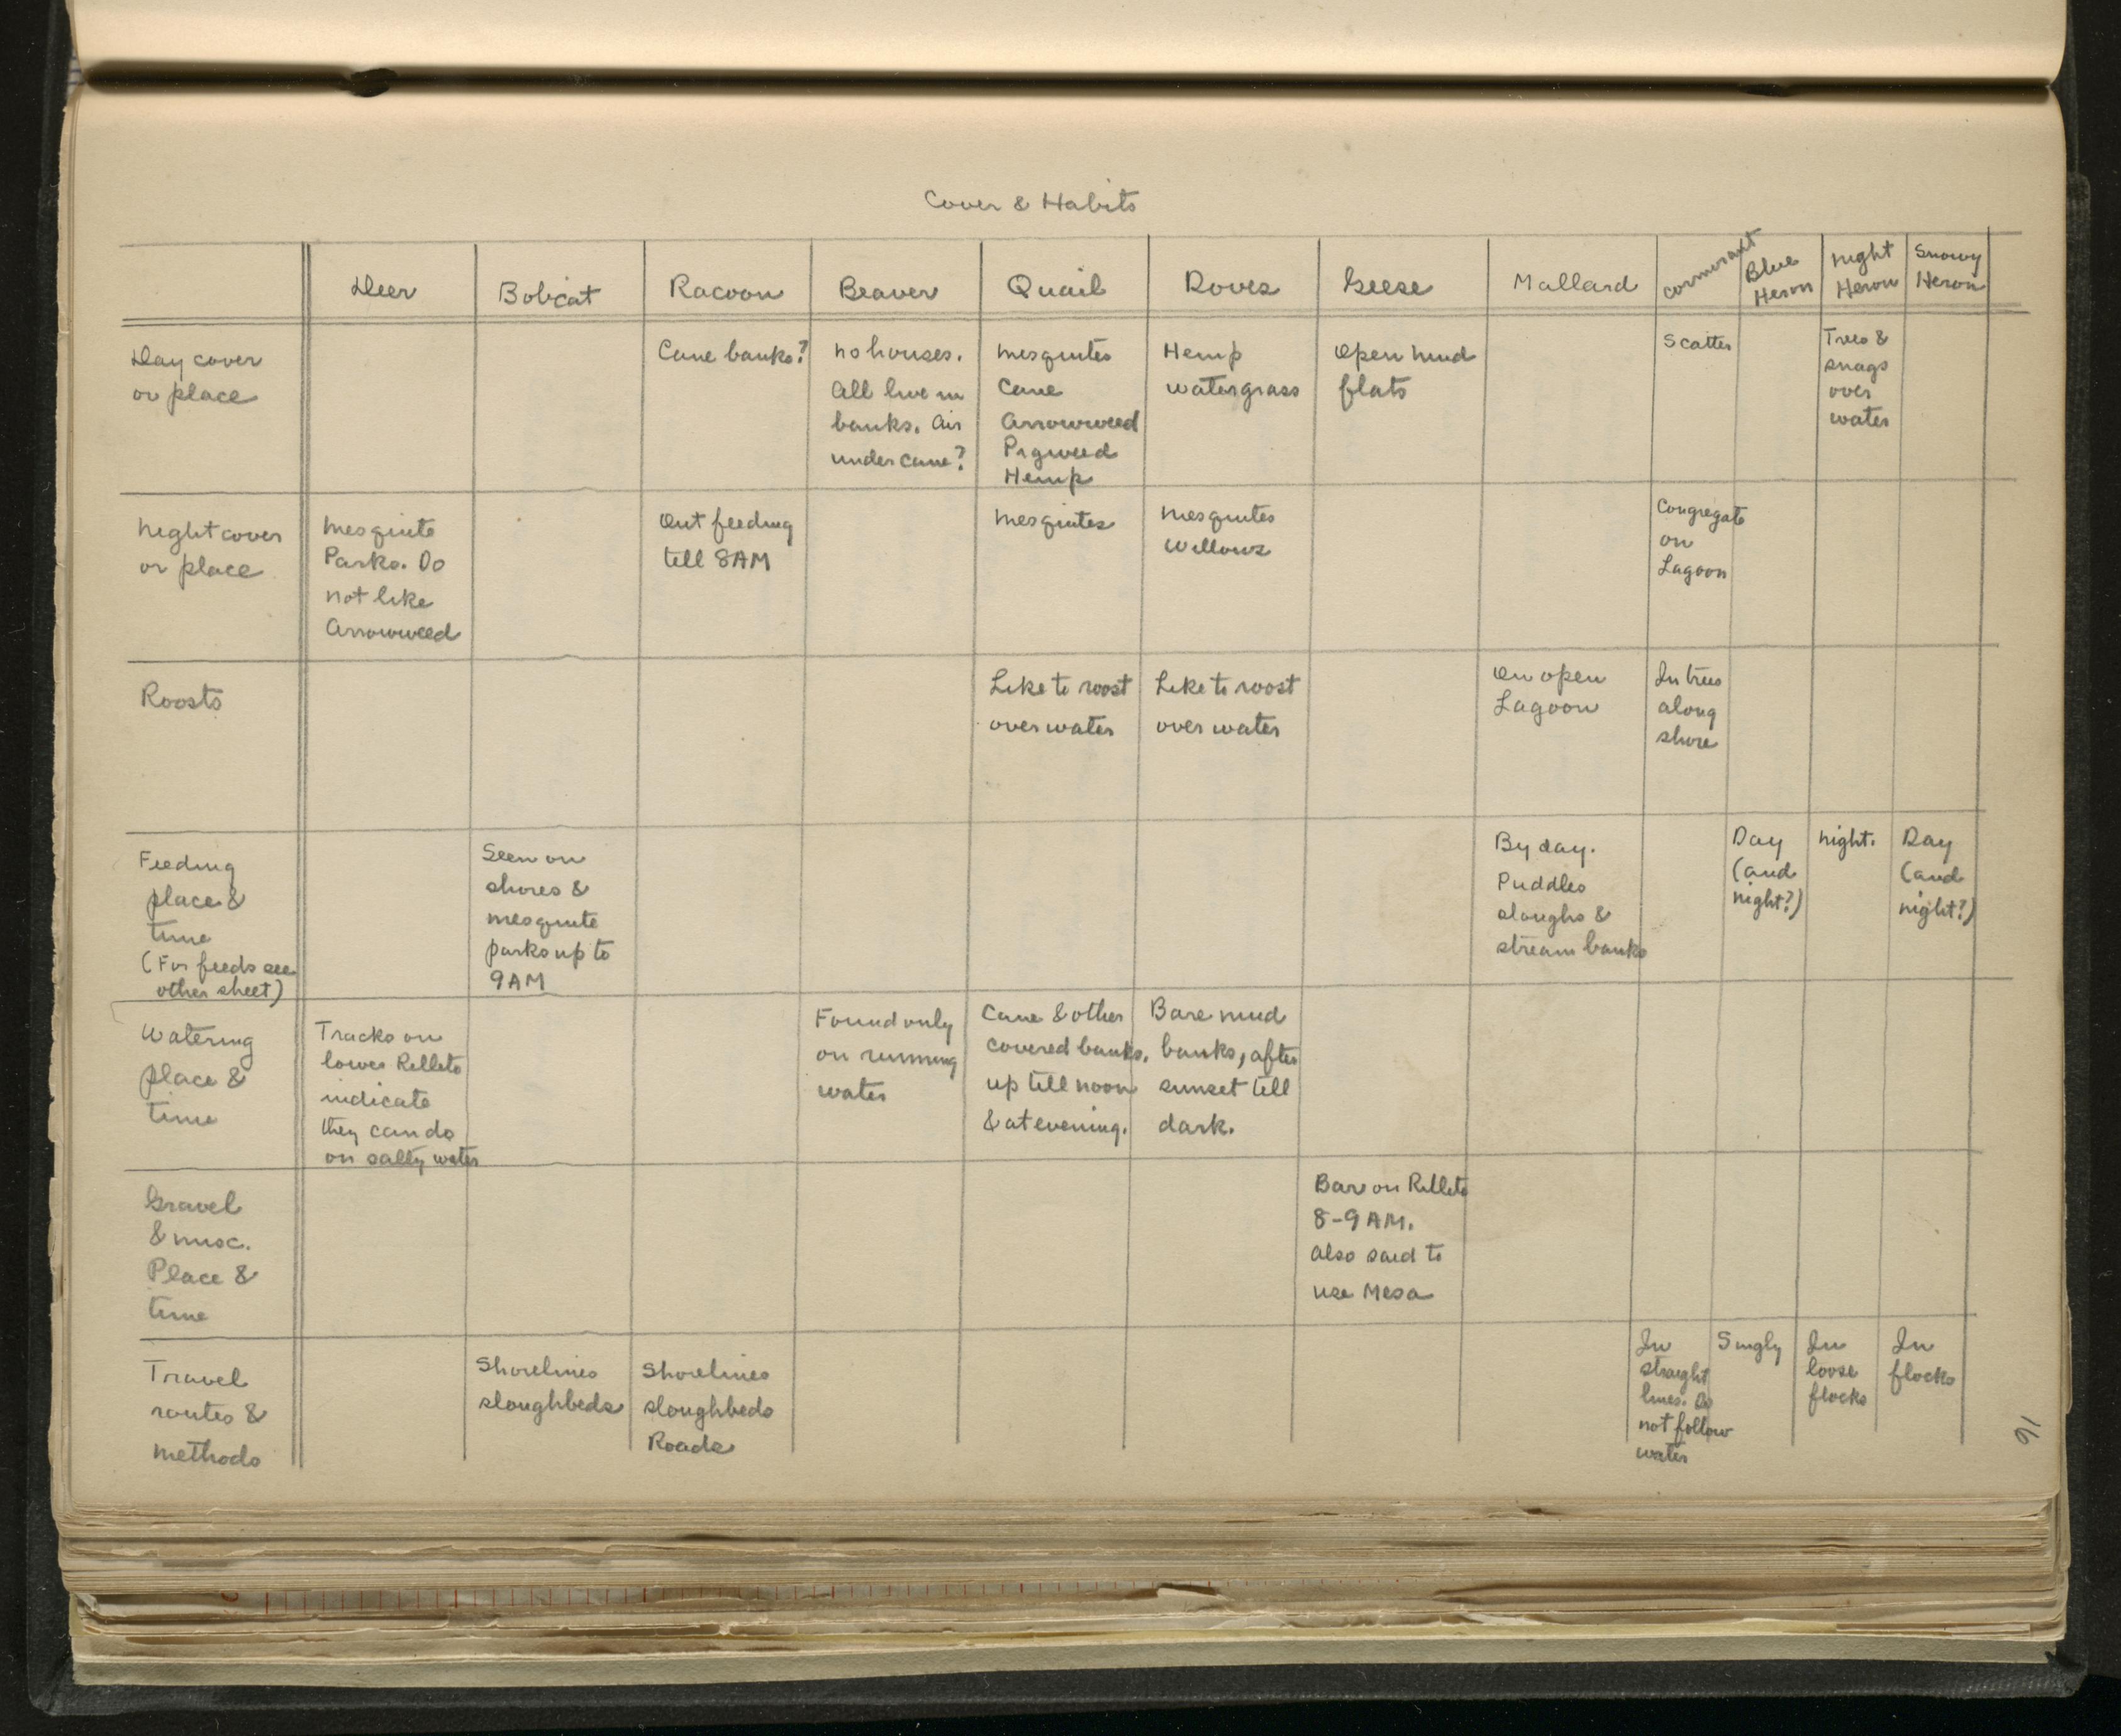 Cover & Habits
Deer
Bobcat
Racoon
Beaver
Quail
Doves
Geese
Mallard
Cormorant
Blue
Heron
Night
Heron
Snowy
Heron
Day cover
or place
Cane banks?
No houses.
All live in
banks. Air
under cane?
Mesquites
Cane
Arrowweed
Pigweed
Hemp
Hemp
Watergrass
Open mud
flats
Scatter
Trees &
snags
over
water
Night cover
or place
Mesquite
Parks. Do
not like
Arrowweed
Out feeding
till 8AM
Mesquites
Mesquites
Willows
Congregate
on
Lagoon
Roosts
Like to roost
over water
Like to roost
over water
On open
Lagoon
In trees
along
shore
Feeding
place &
time
(For feeds see
other sheet)
Seen on
shores &
mesquite
parks up to
9AM
By day.
Puddles
sloughs &
stream banks
Day
(and
night?)
Night.
Day
(and
night?)
Watering
place &
time
Tracks on
lower Rillito
indicate
they can do
on salty water
Found only
on running
water
Cane & other
covered banks,
up till noon
& at evening.
Bare mud
banks, after
sunset till
dark.
Gravel
& misc.
Place &
time
Bar on Rillito
8-9 AM.
Also said to
use Mesa
Travel
routes &
methods
Shorelines
sloughbeds
Shorelines
sloughbeds
Roads
In
straight
lines. Do
not follow
water
Singly
In
loose
flocks
In
flocks
91